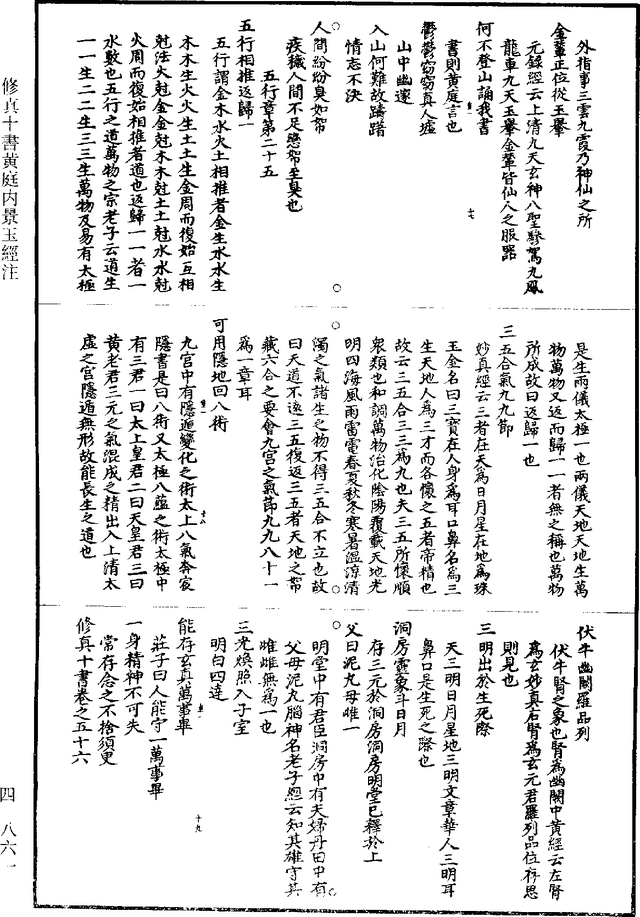 修真十書黃庭內景玉經注
四 八六一
外指事三雲九霞乃神仙之所
金輦正位從玉轝
元錄經云上清九天玄神八聖驂駕九鳳
龍車九天玉轝金輦皆仙人之服器
何不登山誦我書
書則黃庭言也
鬱鬱窈窈真人墟
山中幽邃
入山何難故躊躇
情志不決
人間紛紛臭如帤
疾穢人間不足戀帤至臭也
五行章第二十五
五行相推返歸一
五行謂金木水火土相推者金生水水生
木木生火火生土土生金周而復始互相
尅法火尅金金尅木木尅土土尅水水尅
火周而復始相推者道也返歸一一者一
水數也五行之道萬物之宗老子云道生
一一生二二生三三生萬物及易有太極
是生兩儀太極一也兩儀天地天地生萬
物萬物又返而歸一一者無之稱也萬物
所成故曰返歸一也
三五合氣九九節
妙真經云三者在天為日月星在地為珠
玉金名曰三寶在人身為耳口鼻名為三
生天地人為三才而各懷之五者帝精也
故云三五合三三為九也夫三五所懷順
衆類也和調萬物治化陰陽覆載天地光
明四海風雨雷電春夏秋冬寒暑溫涼清
濁之氣諸生之物不得三五合不立也故
曰天道不遠三五復返三五者天地之帤
藏六合之要會九宮之氣節九九八十一
為一章耳
可用隱地回八術
九宮中有隱遁變化之術太上八氣奔宸
隱書是曰八術又太極八蘊之術太極中
有三君一曰太上皇君二曰天皇君三曰
黃老君三元之氣混成之精出入上清太
虛之宮隱遁無形故能長生之道也
伏牛幽闕羅品列
伏牛腎之象也腎為幽闕中黃經云左腎
為玄妙真右腎為玄元君羅列品位存思
則見也
三明出於生死際
天三明日月星地三明文章華人三明耳
鼻口是生死之際也
洞房靈象斗日月
存三元於洞房洞房明堂已釋於上
父曰泥丸母雌一
明堂中有君臣洞房中有夫婦丹田中有
父母泥丸腦神名老子經云知其雄守其
雌雌無為一也
三光煥照入子室
明白四達
能存玄真萬事畢
莊子曰人能守一萬事畢
一身精神不可失
常存念之不捨須臾
修真十書卷之五十六